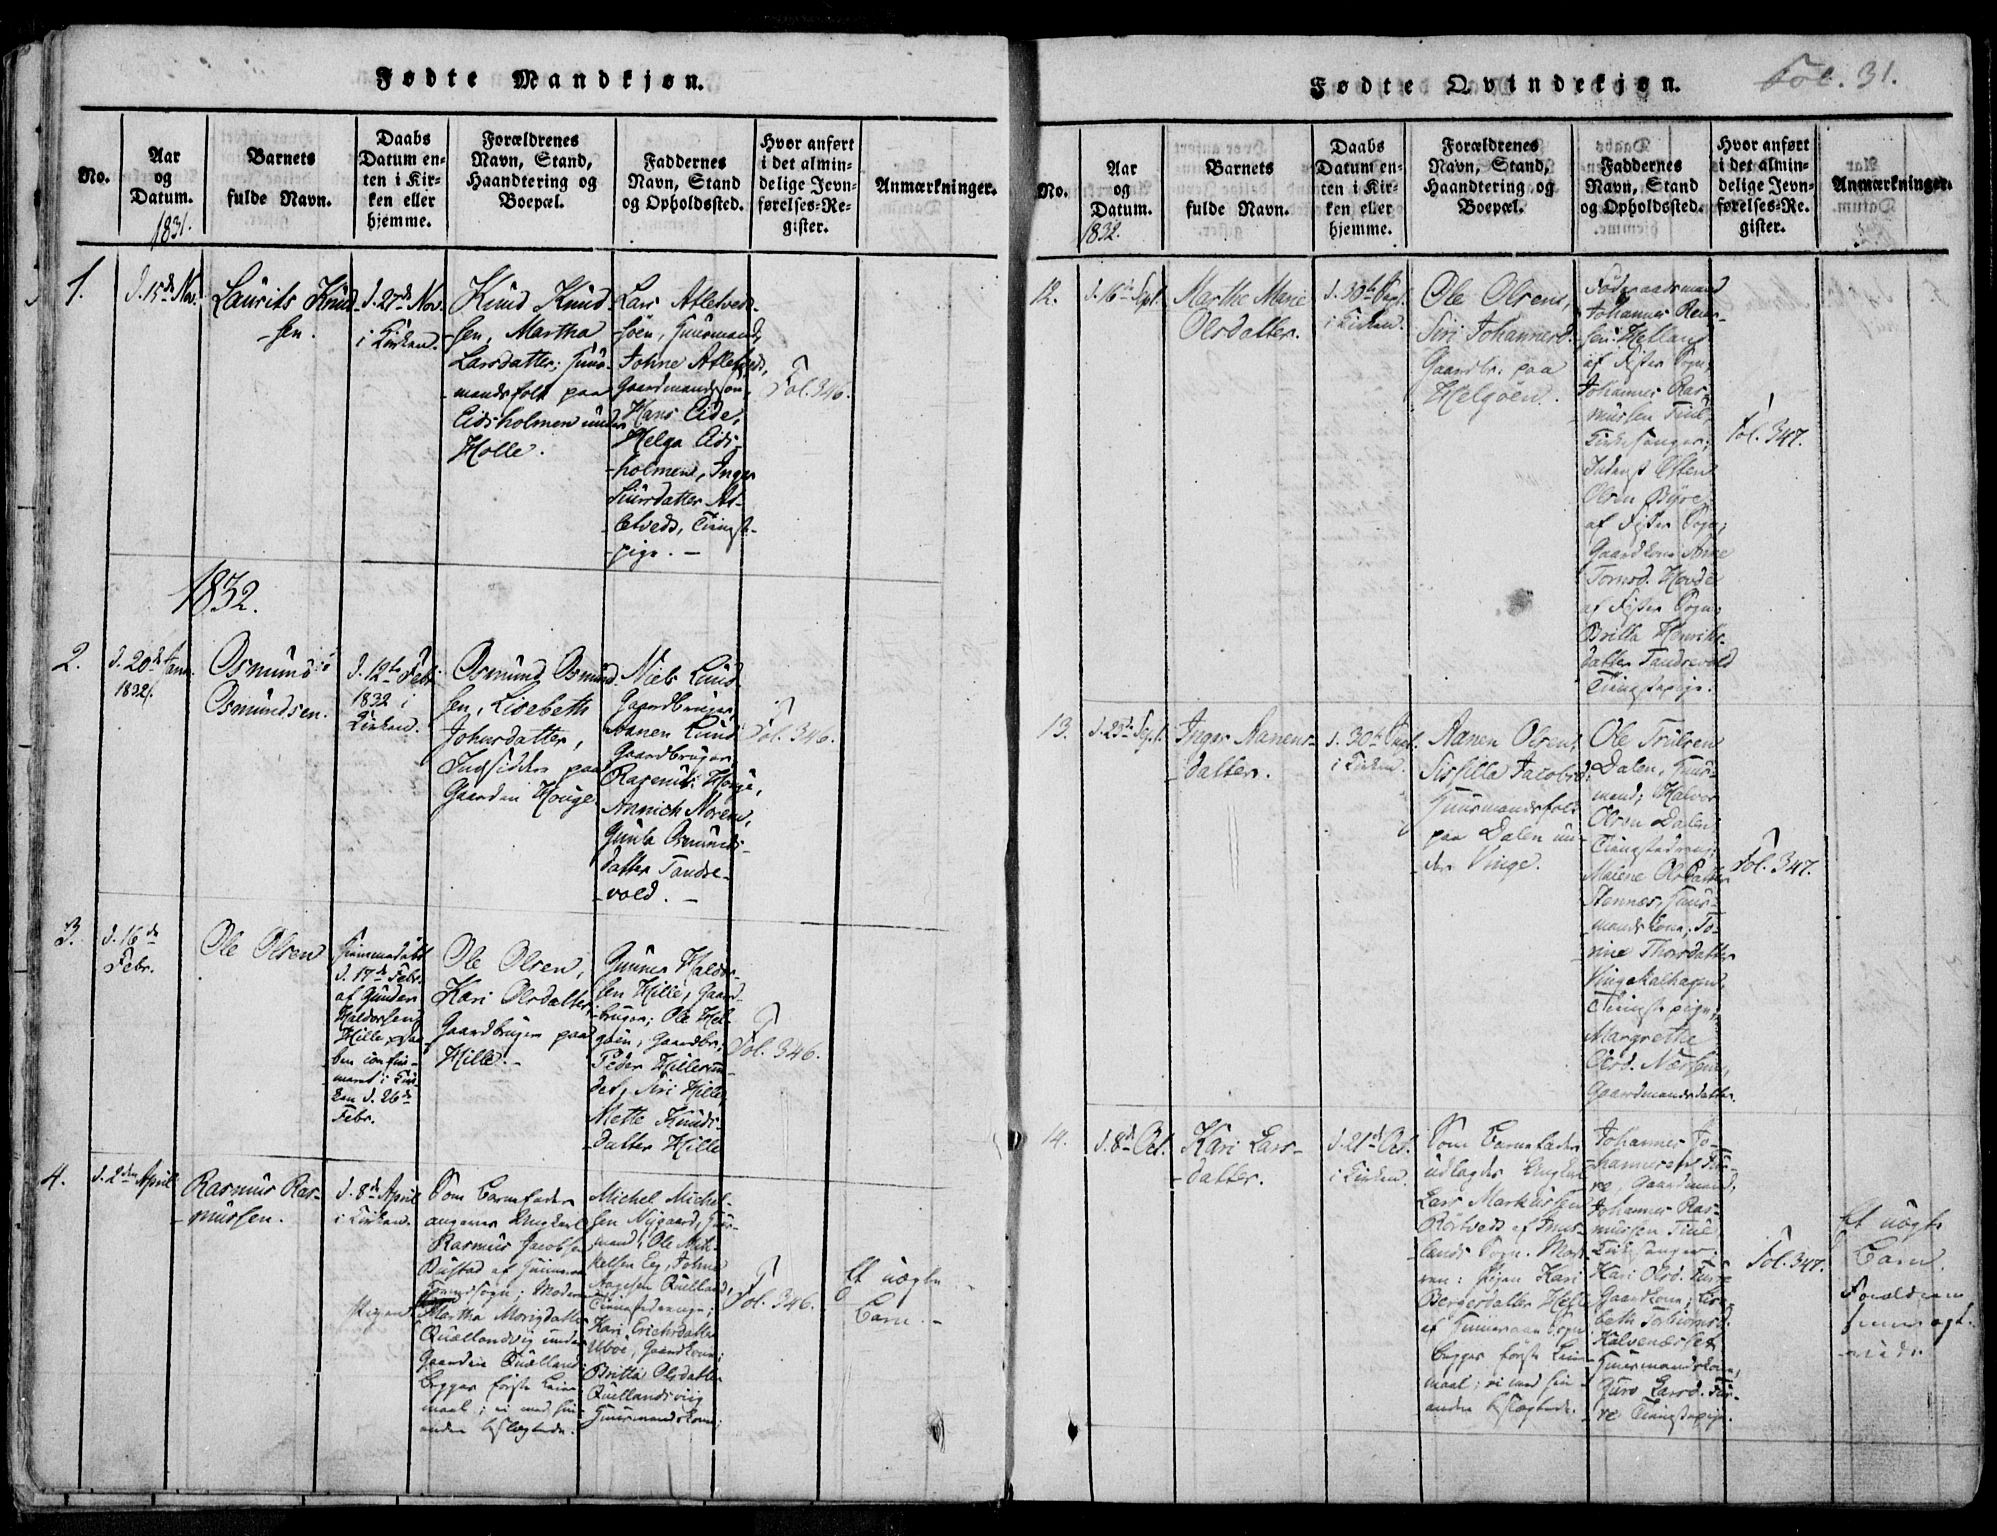 Fødte Mandkjøn.
No.
Aar
og
Datum.
1831.
Barnets
fulde Navn.
Daabs
Datum en-
ten i Kir-
ken eller
hjemme.
Forældrenes
Navn, Stand,
Haandtering og
Boepæl.
Faddernes
Navn, Stand
og Opholdssted.
Hvor anført
i det almin-
delige Jevn-
førelses-Re-
gister.
Anmærkninger.
1.
d. 15de Nov.
Laurits Knud-
sen.
d. 27de Nov.
i Kirken.
Knud Knud-
sen, Martha
Larsdatter; Huus-
mandsfolk paa
Eidsholmen under
Holle.
Lars Atletveds-
Huusmand,
Johne
Gaardmandssøn,
Hans Eide,
Helga Eids-
holmen, Inger
Siursdatter At-
letveds, Tienest-
pige. -
Fol. 346.
1832.
2.
d. 20de Janr.
1832.
Osmund
Osmundsen.
d. 12te Febr.
1832 i
Kirken.
Osmund Osmund-
sen, Lisebeth
Johnsdatter,
Indsidder paa
Gaarden Houge.
Niels Lund
Gaardbruger,
Aanen Lund
Gaardbruger,
Rasmus Houge,
Annich Noren,
Gunla Osmunds-
datter Tandre-
vold. -
Fol. 346.
3.
d. 16de
Febr.
Ole Olsen
Hiemmedøbt
d. 17de Febr.
af Gunder
Haldorsen
Hille, Daa-
ben confir-
meret i Kir-
ken d. 26de
Febr.
Ole Olsen,
Kari Olsdatter,
Gaardbruger paa
Hille. -
Gunner Haldor-
sen Hille, Gaard-
bruger; Ole Hel-
gøen, Gaardbr,
Peder Hillesun-
det, Siri Hille,
Mette Knuds-
datter Hille
Fol. 346.
4.
d. 2den April
Rasmus Ras-
mussen.
d. 8de April
i Kirken.
Som Barnefader
angives Ungkarl
Rasmus Jacobsen
Bustad af
Sogn; Moder
Pigen
Martha
Quællandsvig under
Gaarden Quælland
Begges første Leier-
maal; ei med hin-
anden beslægtede.
Michel Michel-
sen Nygaard, Huus-
mand; Ole Mik-
kelsen Eeg, Johne
Aagesen Quelland,
Tienestedrenge;
Kari Erichsdatter
Uboe, Gaardkone;
Britta Olsdatter
Quellandsviig
Huusmandskone;
Fol. 346.
Et uægte
Barn. -
Fødte Qvindekjøn.
Fol. 31.
No.
Aar
og
Datum.
1832.
Barnets
fulde Navn.
Daabs
Datum en-
ten i Kir-
ken eller
hjemme.
Forældrenes
Navn, Stand,
Haandtering og
Boepæl.
Faddernes
Navn, Stand
og Opholdssted.
Hvor anført
i det almin-
delige Jevn-
førelses-Re-
gister.
Anmærkninger.
12.
d. 16de Sept.
Marthe Marie
Olsdatter.
d. 30te Sept.
i Kirken.
Ole Olsen,
Siri Johannesd.
Gaardbr. paa
Helgøen.
Føderaadsmand
Johannes
sen Helland
af Fister Sogn,
Johannes Ras-
mussen Tuul,
Kirkesanger;
Østen
Olsen Byre,
af Fister Sogn;
Gaardkone Anne
Hovde
af Fister Sogn;
Britta Henriks-
datter Tandrevold
Tienestepige.
Fol. 347.
13.
d. 23de Sept.
Inger Aanens-
datter.
d. 30te Sept.
i Kirken.
Aanen Olsen,
Sissilla Jacobsd.
Huusmandsfolk
paa Dalen un-
der Vinge.
Ole Trulsen
Dalen, Huus-
mand; Halvor
Olsen Dalen
Tienestedreng;
Malene Olsdatter
Stennes, Huus-
mandskone, To-
rine Thorsdatter
Tienestpige,
Margrethe
Olsd.
Gaardmandsdatter.
Fol. 347.
14.
d. 8de Oct.
Kari Lars-
datter.
d. 21de Oct.
i Kirken.
Som Barnefader
udlagdes Ungkarl
Lars Markussen
af
lands Sogn. Mode-
ren: Pigen Kari
Bergesdatter
af Sogn
Begges første Leier-
maal; ei med hin-
anden beslægtede.
Johannes Jo-
hannesen
Gaardmand,
Johannes Ras-
mussen Tuul
Kirkesanger;
Kari Olsd.
Gaardkone; Lise-
beth
Huusmandskone,
Guro Larsd.
Tienestepige.
Fol. 347.
Et uægte
Barn.
Forældrene